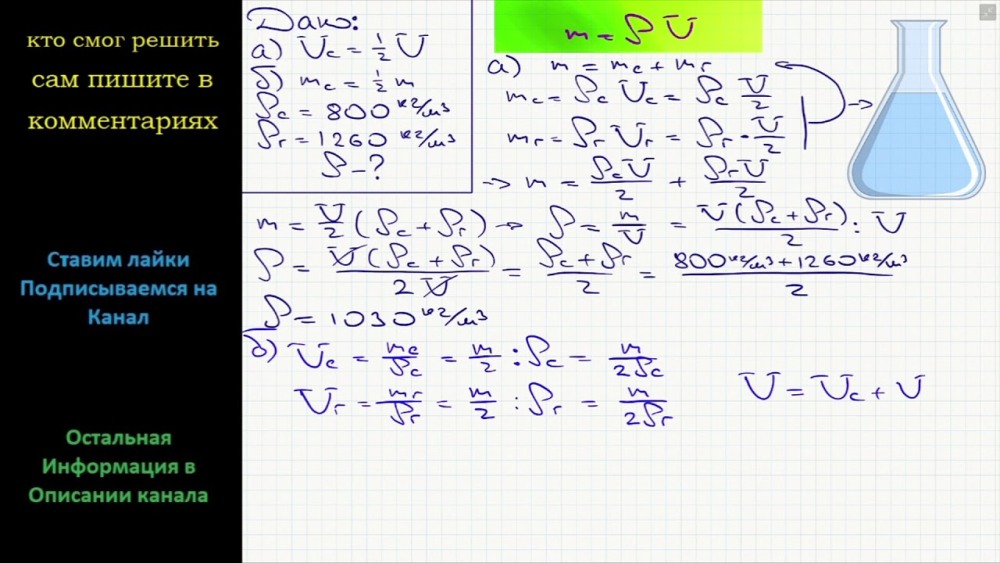 кто смог решить
сам пишите в
комментариях
Ставим лайки
Подписываемся на
Канал
Остальная
Информация в
Описании канала
Дано:
а) Vс = 1/2 V
б) mс = 1/2 m
ρс = 800 кг/м³
ρг = 1260 кг/м³
ρ - ?
m = ρ V
а) m = mс + mг
mс = ρс Vс = ρс V/2
mг = ρг Vг = ρг · V/2
→ m = ρсV/2 + ρгV/2
m = V/2 (ρс + ρг) → ρ = m/V = V(ρс + ρг)/2 : V
ρ = V(ρс + ρг)/2V = ρс + ρг/2 = 800 кг/м³ + 1260 кг/м³/2
ρ = 1030 кг/м³
б) Vс = mс/ρс = m/2 : ρс = m/2ρс
Vг = mг/ρг = m/2 : ρг = m/2ρг
V = Vс + V